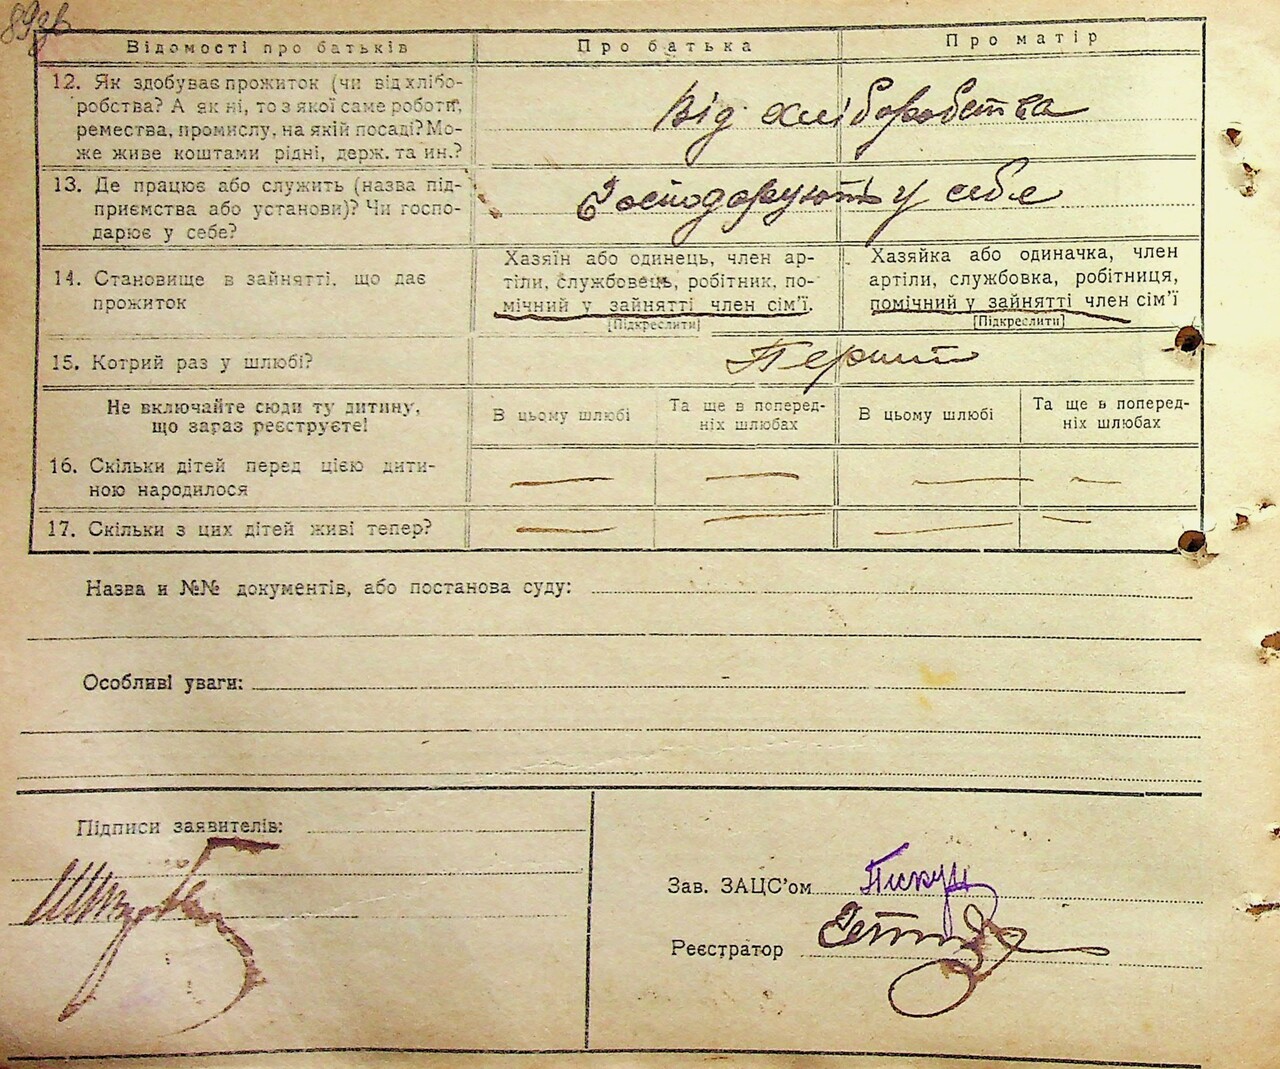 89зв
Відомості про батьків Про батька Про матір
12. Як здобуває прожиток (чи від хлібо-
робства? А як ні, то з якої саме роботи,
ремества, промислу, на якій посаді? Мо-
же живе коштами рідні, держ. та ин.?
Від хліборобства
13. Де працює або служить (назва під-
приємства або установи)? Чи госпо-
дарює у себе?
Господарують у себе
14. Становище в зайнятті, що дає
прожиток
Хазяїн або одинець, член ар-
тіли, службовець, робітник, по-
мічний у зайнятті член сім’ї.
[Підкреслити]
Хазяйка або одиначка, член
артіли, службовка, робітниця,
помічний у зайнятті член сім’ї
[Підкреслити]
15. Котрий раз у шлюбі?
Перший
Не включайте сюди ту дитину,
що зараз реєструєте!
В цьому шлюбі
Та ще в поперед-
ніх шлюбах
В цьому шлюбі
Та ще в поперед-
ніх шлюбах
16. Скільки дітей перед цією дити-
ною народилося
— — — —
17. Скільки з цих дітей живі тепер?
— — — —
Назва и №№ документів, або постанова суду:
Особливі уваги:
Підписи заявителів:
Зав. ЗАЦС’ом Пискун
Реєстратор